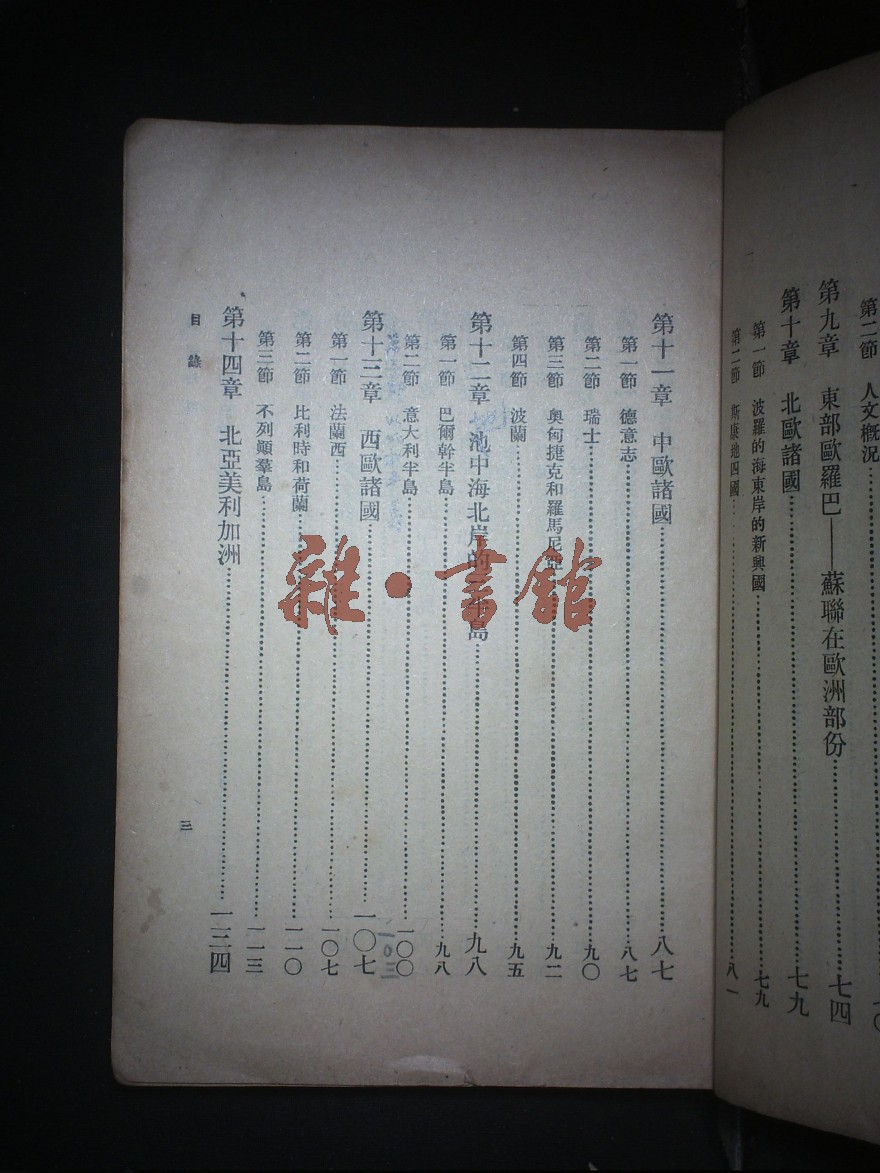 第二節 人文概況
第九章 東部歐羅巴——蘇聯在歐洲部份……七四
第十章 北歐諸國……七九
第一節 波羅的海東岸的新興國……七九
第二節 斯康地四國……八一
第十一章 中歐諸國……八七
第一節 德意志……八七
第二節 瑞士……九〇
第三節 奧匈捷克和羅馬尼亞……九二
第四節 波蘭……九五
第十二章 池中海北岸的三半島……九八
第一節 巴爾幹半島……九八
第二節 意大利半島……一〇〇
一〇三
第十三章 西歐諸國……一〇七
第一節 法蘭西……一〇七
第二節 比利時和荷蘭……一一〇
第三節 不列顛羣島……一一三
第十四章 北亞美利加洲……一二四
目錄
三
雜·書館